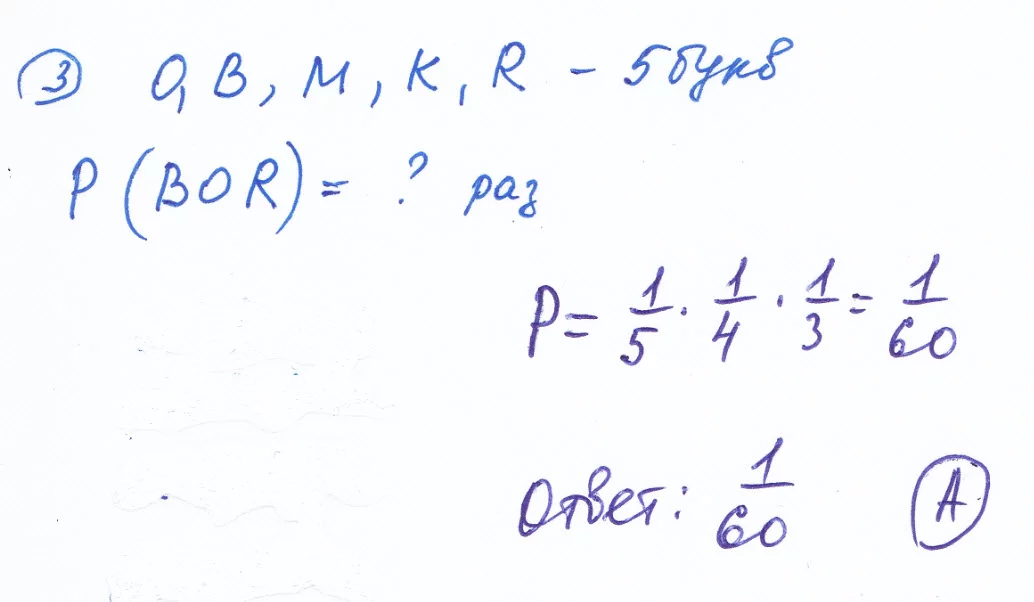 ③ O, B, M, K, R - 5 букв
P (BOR) = ? раз
P = 1/5 · 1/4 · 1/3 = 1/60
Ответ: 1/60 Ⓐ